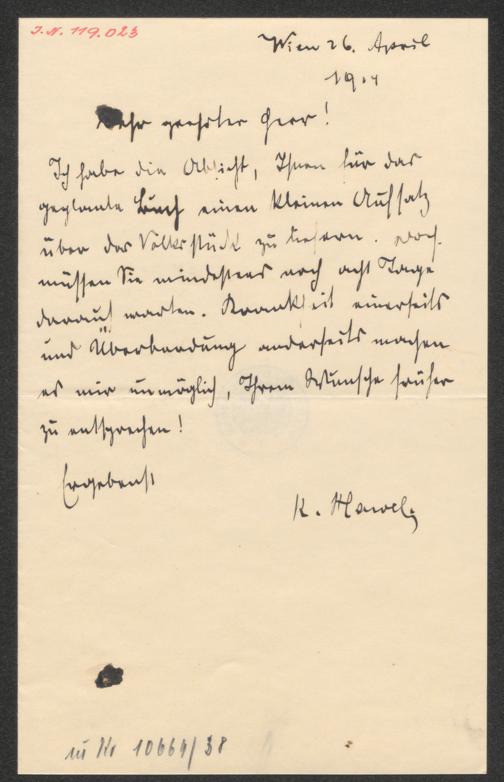 I.N. 119.023
Wien 26. April
1904
Sehr geehrter Herr!
Ich habe die Absicht, Ihnen für das
geplante Buch einen kleinen Aufsatz
über das Volksstück zu liefern. Doch
müssen Sie mindestens noch acht Tage
darauf warten. Krankheit einerseits
und Überbürdung anderseits machen
es mir unmöglich, Ihrem Wunsche früher
zu entsprechen!
Ergebenst
K. Hawel
10664/38